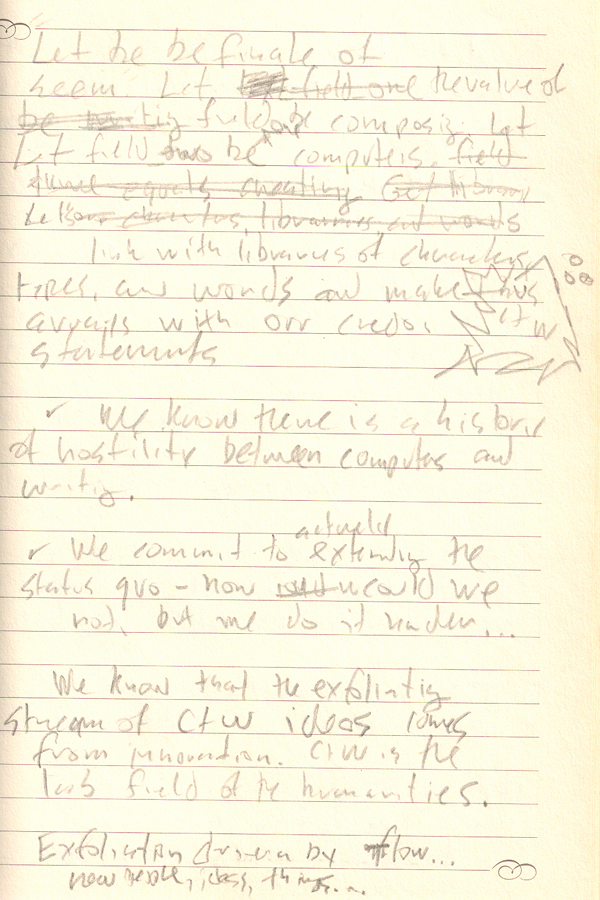 Let be be finale of
seem. Let field one the value of
be field one be composig. Let
Let field be computers, field
equals cheating Get library
libraries, and words
link with libraries of characters,
types, and words and make this
arrays with our credo.
statements
C+W
✓ We know there is a history
of hostility between computers and
writig.
actually
✓ We commit to extending the
status quo – how could we
not, but we do it harder...
We know that the exfoliatig
stream of C+W ideas comes
from innovation. C+W is the
lab field of the humanities.
Exfoliation driven by flow...
new people, ideas, things...